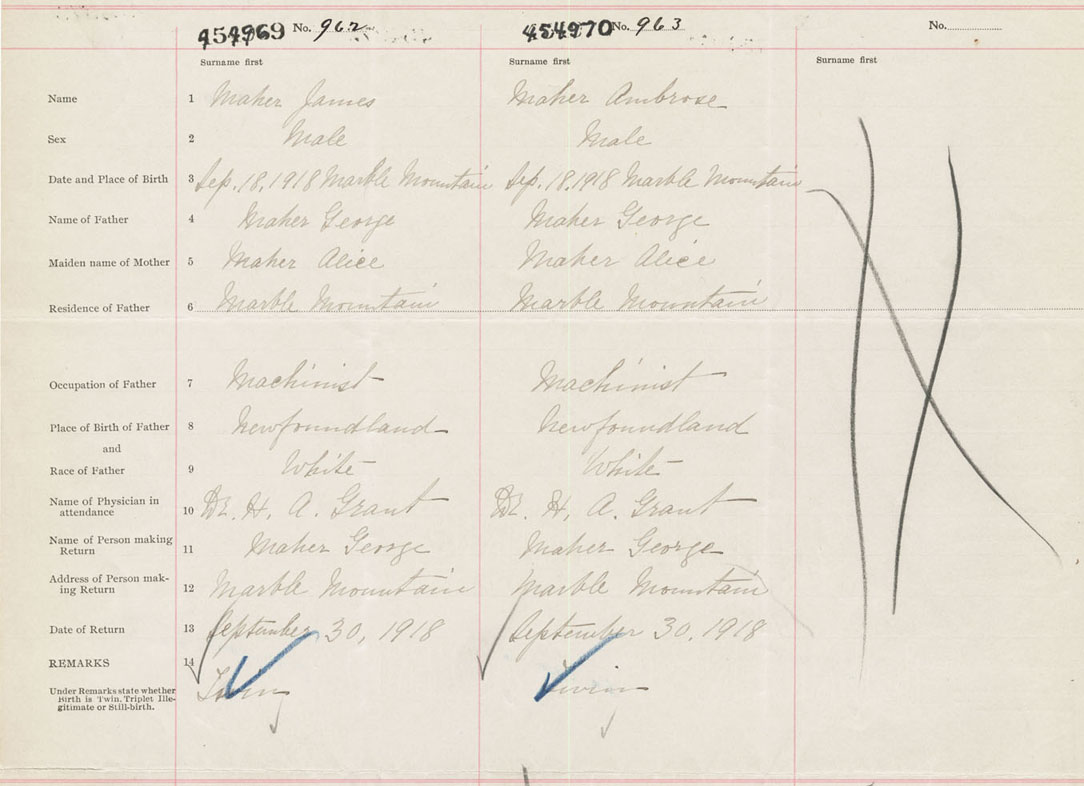 454969 No. 962 454970 No. 963 No.
Surname first Surname first Surname first
Name 1 Maher James Maher Ambrose
Sex 2 Male Male
Date and Place of Birth 3 Sep. 18, 1918 Marble Mountain Sep. 18, 1918 Marble Mountain
Name of Father 4 Maher George Maher George
Maiden name of Mother 5 Maher Alice Maher Alice
Residence of Father 6 Marble Mountain Marble Mountain
Occupation of Father 7 Machinist Machinist
Place of Birth of Father 8 Newfoundland Newfoundland
and
Race of Father 9 White White
Name of Physician in
attendance 10 Dr. H. A. Grant Dr. H. A. Grant
Name of Person making
Return 11 Maher George Maher George
Address of Person mak-
ing Return 12 Marble Mountain Marble Mountain
Date of Return 13 September 30, 1918 September 30, 1918
REMARKS 14
Under Remarks state whether Twin Twin
Birth is Twin, Triplet Ille-
gitimate or Still-birth.